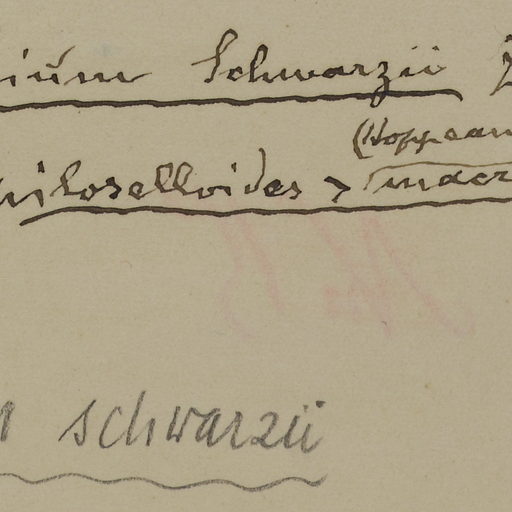 iŭm Schwarzii
(Hoppean
piloselloides > macr
schwarzii